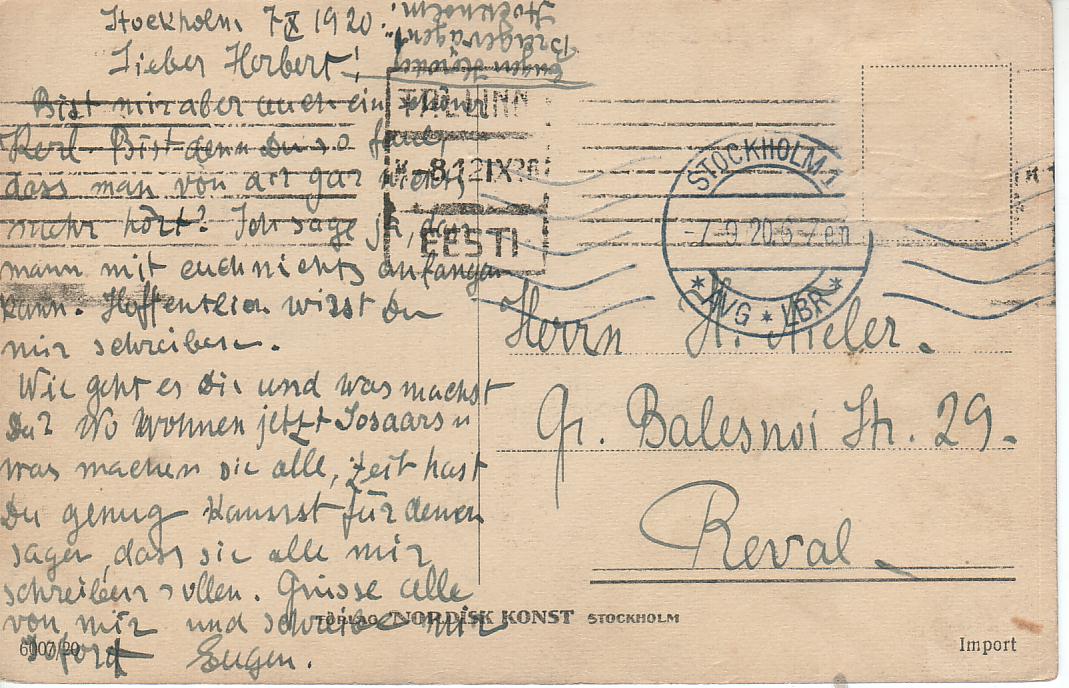 Stockholm 7 X 1920.
Lieber Herbert!
Bist mir aber auch ein schöner
Kerl. Bist denn Du so faul,
dass man von dir gar nichts
mehr hört? Ich sage ja, dass
mann mit euch nichts anfangen
kann. Hoffentlich wirst du
mir schreiben.
Wie geht es Dir und was machst
Du? Wo wohnen jetzt
was machen sie alle, Zeit hast
Du genug kannst für denen
sagen, dass sie alle mir
schreiben sollen. Grüsse alle
von mir und schreibe mir
sofort Eugen.
Eugen
Stockholm.
TALLINN
-8.12IX20
EESTI
STOCKHOLM.1
-7.9.20.6-7em
*AVG*LBR*
Herrn H.
Gr. Str. 29.
Reval
FÖRLAG NORDISK KONST STOCKHOLM
6007/20
Import